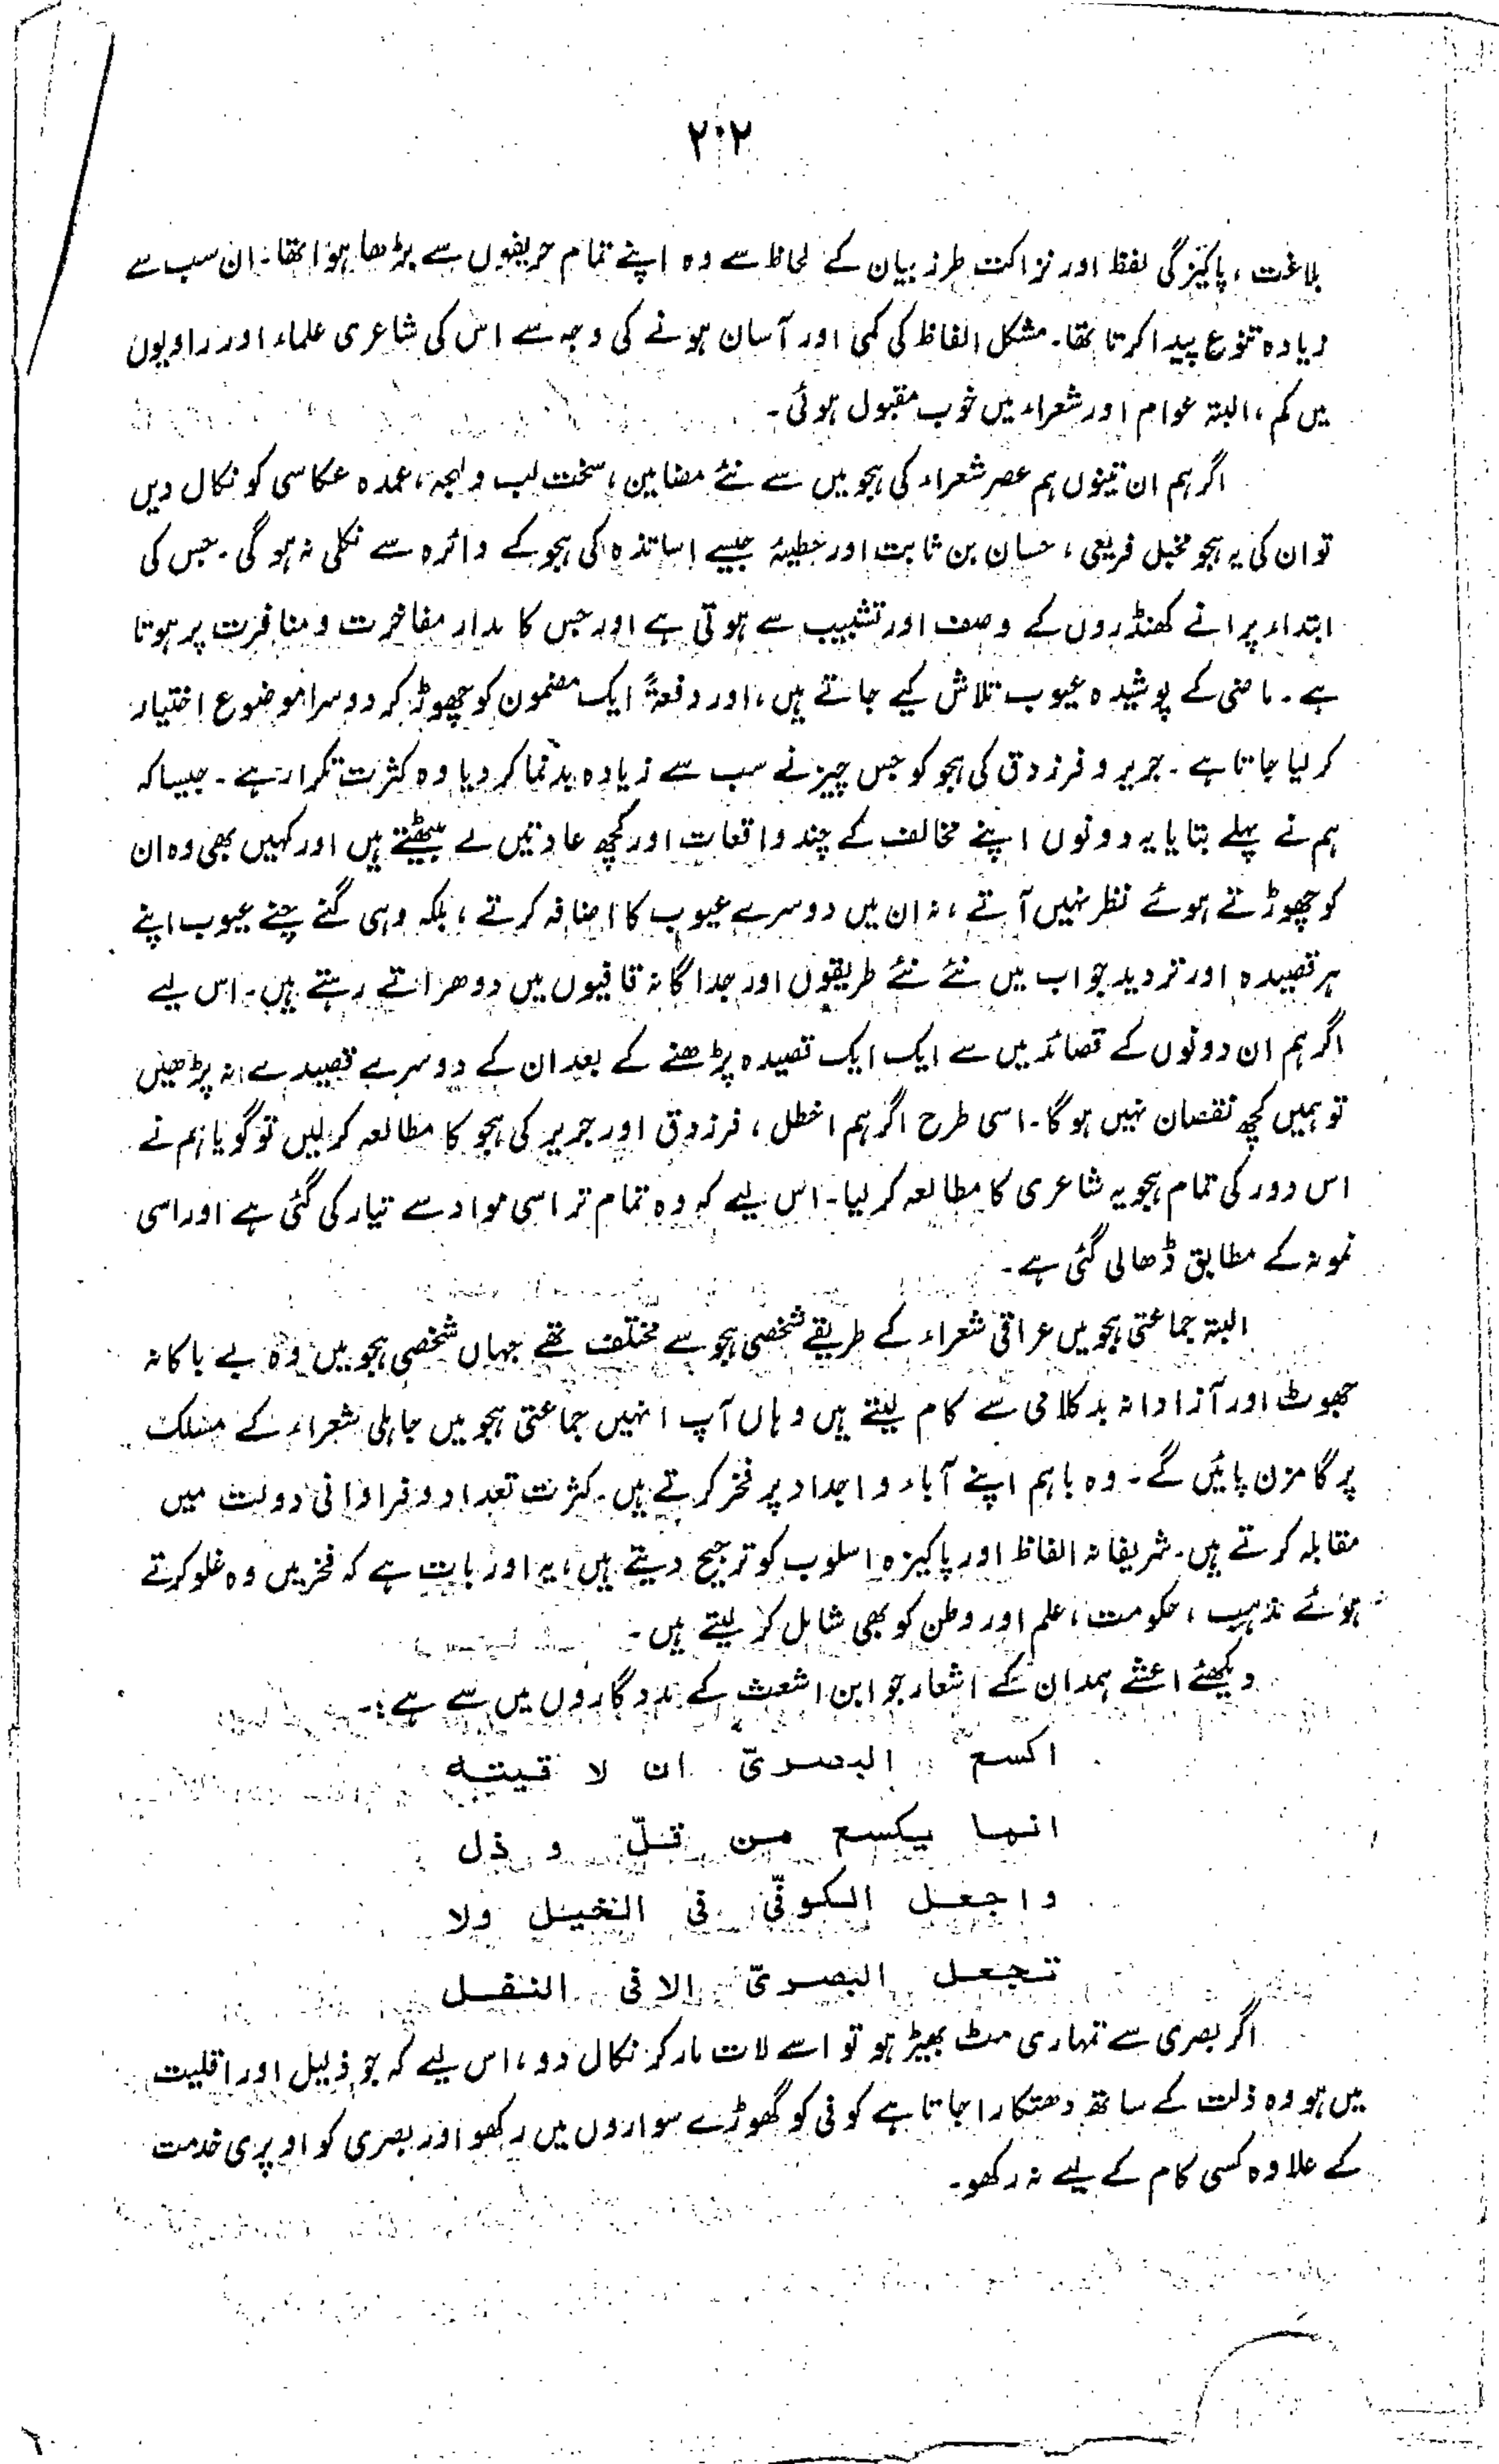 ۲۰۲
بلاغت، پاکیزگی لفظ اور نزاکت طرز بیان کے لحاظ سے وہ اپنے تمام حریفوں سے بڑھا ہوا تھا۔ ان سب سے
زیادہ تنوع پیدا کرتا تھا۔ مشکل الفاظ کی کمی اور آسان ہونے کی وجہ سے اس کی شاعری علماء اور راویوں
میں کم، البتہ عوام اور شعراء میں خوب مقبول ہوئی۔
اگر ہم ان تینوں ہم عصر شعراء کی ہجو میں سے نئے مضامین، سخت لب و لہجہ، عمدہ عکاسی کو نکال دیں
تو ان کی یہ ہجو مخبل قریعی، حسان بن ثابت اور حطیئہ جیسے اساتذہ کی ہجو کے دائرہ سے نکلی نہ ہو گی۔ جس کی
ابتداء پرانے کھنڈروں کے وصف اور تشبیب سے ہوتی ہے اور جس کا مدار مفاخرت و منافرت پر ہوتا
ہے۔ ماضی کے پوشیدہ عیوب تلاش کیے جاتے ہیں، اور دفعۃً ایک مضمون کو چھوڑ کر دوسرا موضوع اختیار
کر لیا جاتا ہے۔ جریر و فرزدق کی ہجو کو جس چیز نے سب سے زیادہ بدنما کر دیا وہ کثرت تکرار ہے۔ جیسا کہ
ہم نے پہلے بتایا یہ دونوں اپنے مخالف کے چند واقعات اور کچھ عادتیں لے بیٹھتے ہیں اور کہیں بھی وہ ان
کو چھوڑتے ہوئے نظر نہیں آتے، نہ ان میں دوسرے عیوب کا اضافہ کرتے، بلکہ وہی گنے چنے عیوب اپنے
ہر قصیدہ اور تردید جواب میں نئے نئے طریقوں اور جداگانہ قافیوں میں دوھراتے رہتے ہیں۔ اس لیے
اگر ہم ان دونوں کے قصائد میں سے ایک ایک قصیدہ پڑھنے کے بعد ان کے دوسرے قصیدے نہ پڑھیں
تو ہمیں کچھ نقصان نہیں ہو گا۔ اسی طرح اگر ہم اخطل، فرزدق اور جریر کی ہجو کا مطالعہ کر لیں تو گویا ہم نے
اس دور کی تمام ہجویہ شاعری کا مطالعہ کر لیا۔ اس لیے کہ وہ تمام تر اسی مواد سے تیار کی گئی ہے اور اسی
نمونہ کے مطابق ڈھالی گئی ہے۔
البتہ جماعتی ہجو میں عراقی شعراء کے طریقے شخصی ہجو سے مختلف تھے جہاں شخصی ہجو میں وہ بے باکانہ
جھوٹ اور آزادانہ بدکلامی سے کام لیتے ہیں وہاں آپ انہیں جماعتی ہجو میں جاہلی شعراء کے مسلک
پر گامزن پائیں گے۔ وہ باہم اپنے آباء و اجداد پر فخر کرتے ہیں۔ کثرت تعداد و فراوانی دولت میں
مقابلہ کرتے ہیں۔ شریفانہ الفاظ اور پاکیزہ اسلوب کو ترجیح دیتے ہیں، یہ اور بات ہے کہ فخر میں وہ غلو کرتے
ہوئے مذہب، حکومت، علم اور وطن کو بھی شامل کر لیتے ہیں۔
دیکھئے اعشے ہمدان کے اشعار جو ابن اشعث کے مددگاروں میں سے ہے:۔
اکسع البصریّ ان لا قیتہ
انما یکسع من قلّ و ذل
واجعل الکوفّی فی الخیل ولا
تجعل البصریّ الا فی النفل
اگر بصری سے تمہاری مٹ بھیڑ ہو تو اسے لات مار کر نکال دو، اس لیے کہ جو ذلیل اور اقلیت
میں ہو وہ ذلت کے ساتھ دھتکارا جاتا ہے کوفی کو گھوڑے سواروں میں رکھو اور بصری کو اوپری خدمت
کے علاوہ کسی کام کے لیے نہ رکھو۔